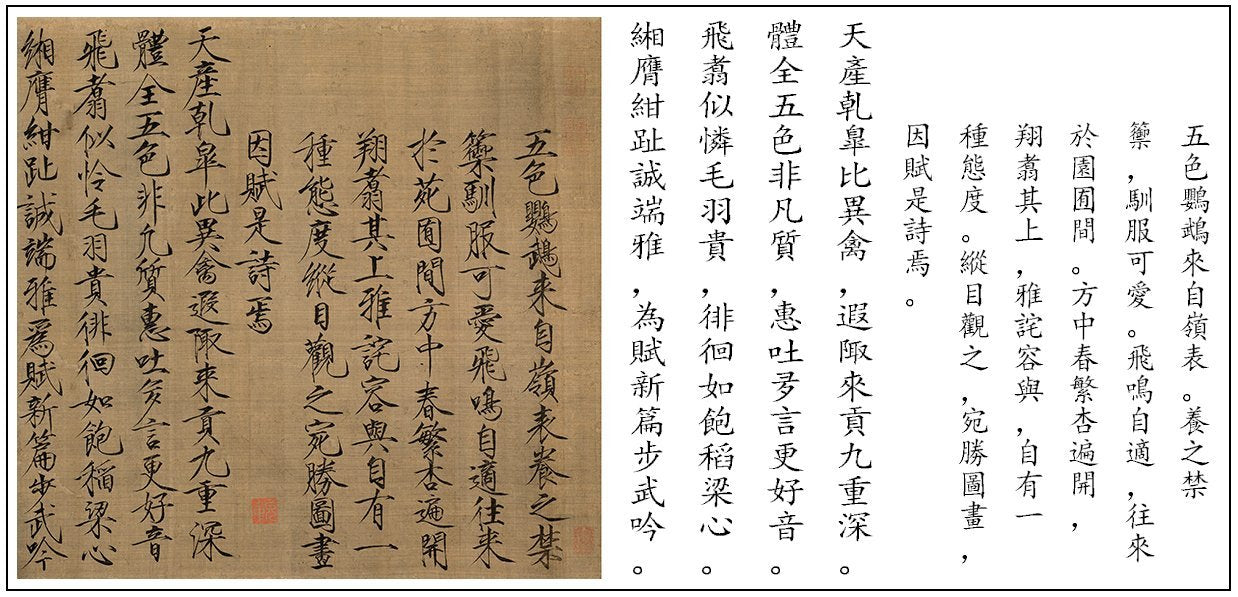 五色鸚鵡来自嶺表養之禁
籞馴服可愛飛鳴自適往来
於苑囿間方中春繁杏遍開
翔翥其上雅詫容與自有一
種態度縱目觀之宛勝圖畫
因賦是詩焉
天産乹皐此異禽遐陬来貢九重深
體全五色非凢質惠吐多言更好音
飛翥似怜毛羽貴徘徊如飽稻梁心
緗膺紺趾誠端雅為賦新篇步武吟
五色鸚鵡來自嶺表。養之禁
籞，馴服可愛。飛鳴自適，往來
於園囿間。方中春繁杏遍開，
翔翥其上，雅詫容與，自有一
種態度。縱目觀之，宛勝圖畫，
因賦是詩焉。
天產乹皐比異禽，遐陬來貢九重深。
體全五色非凡質，惠吐多言更好音。
飛翥似憐毛羽貴，徘徊如飽稻梁心。
緗膺紺趾誠端雅，為賦新篇步武吟。